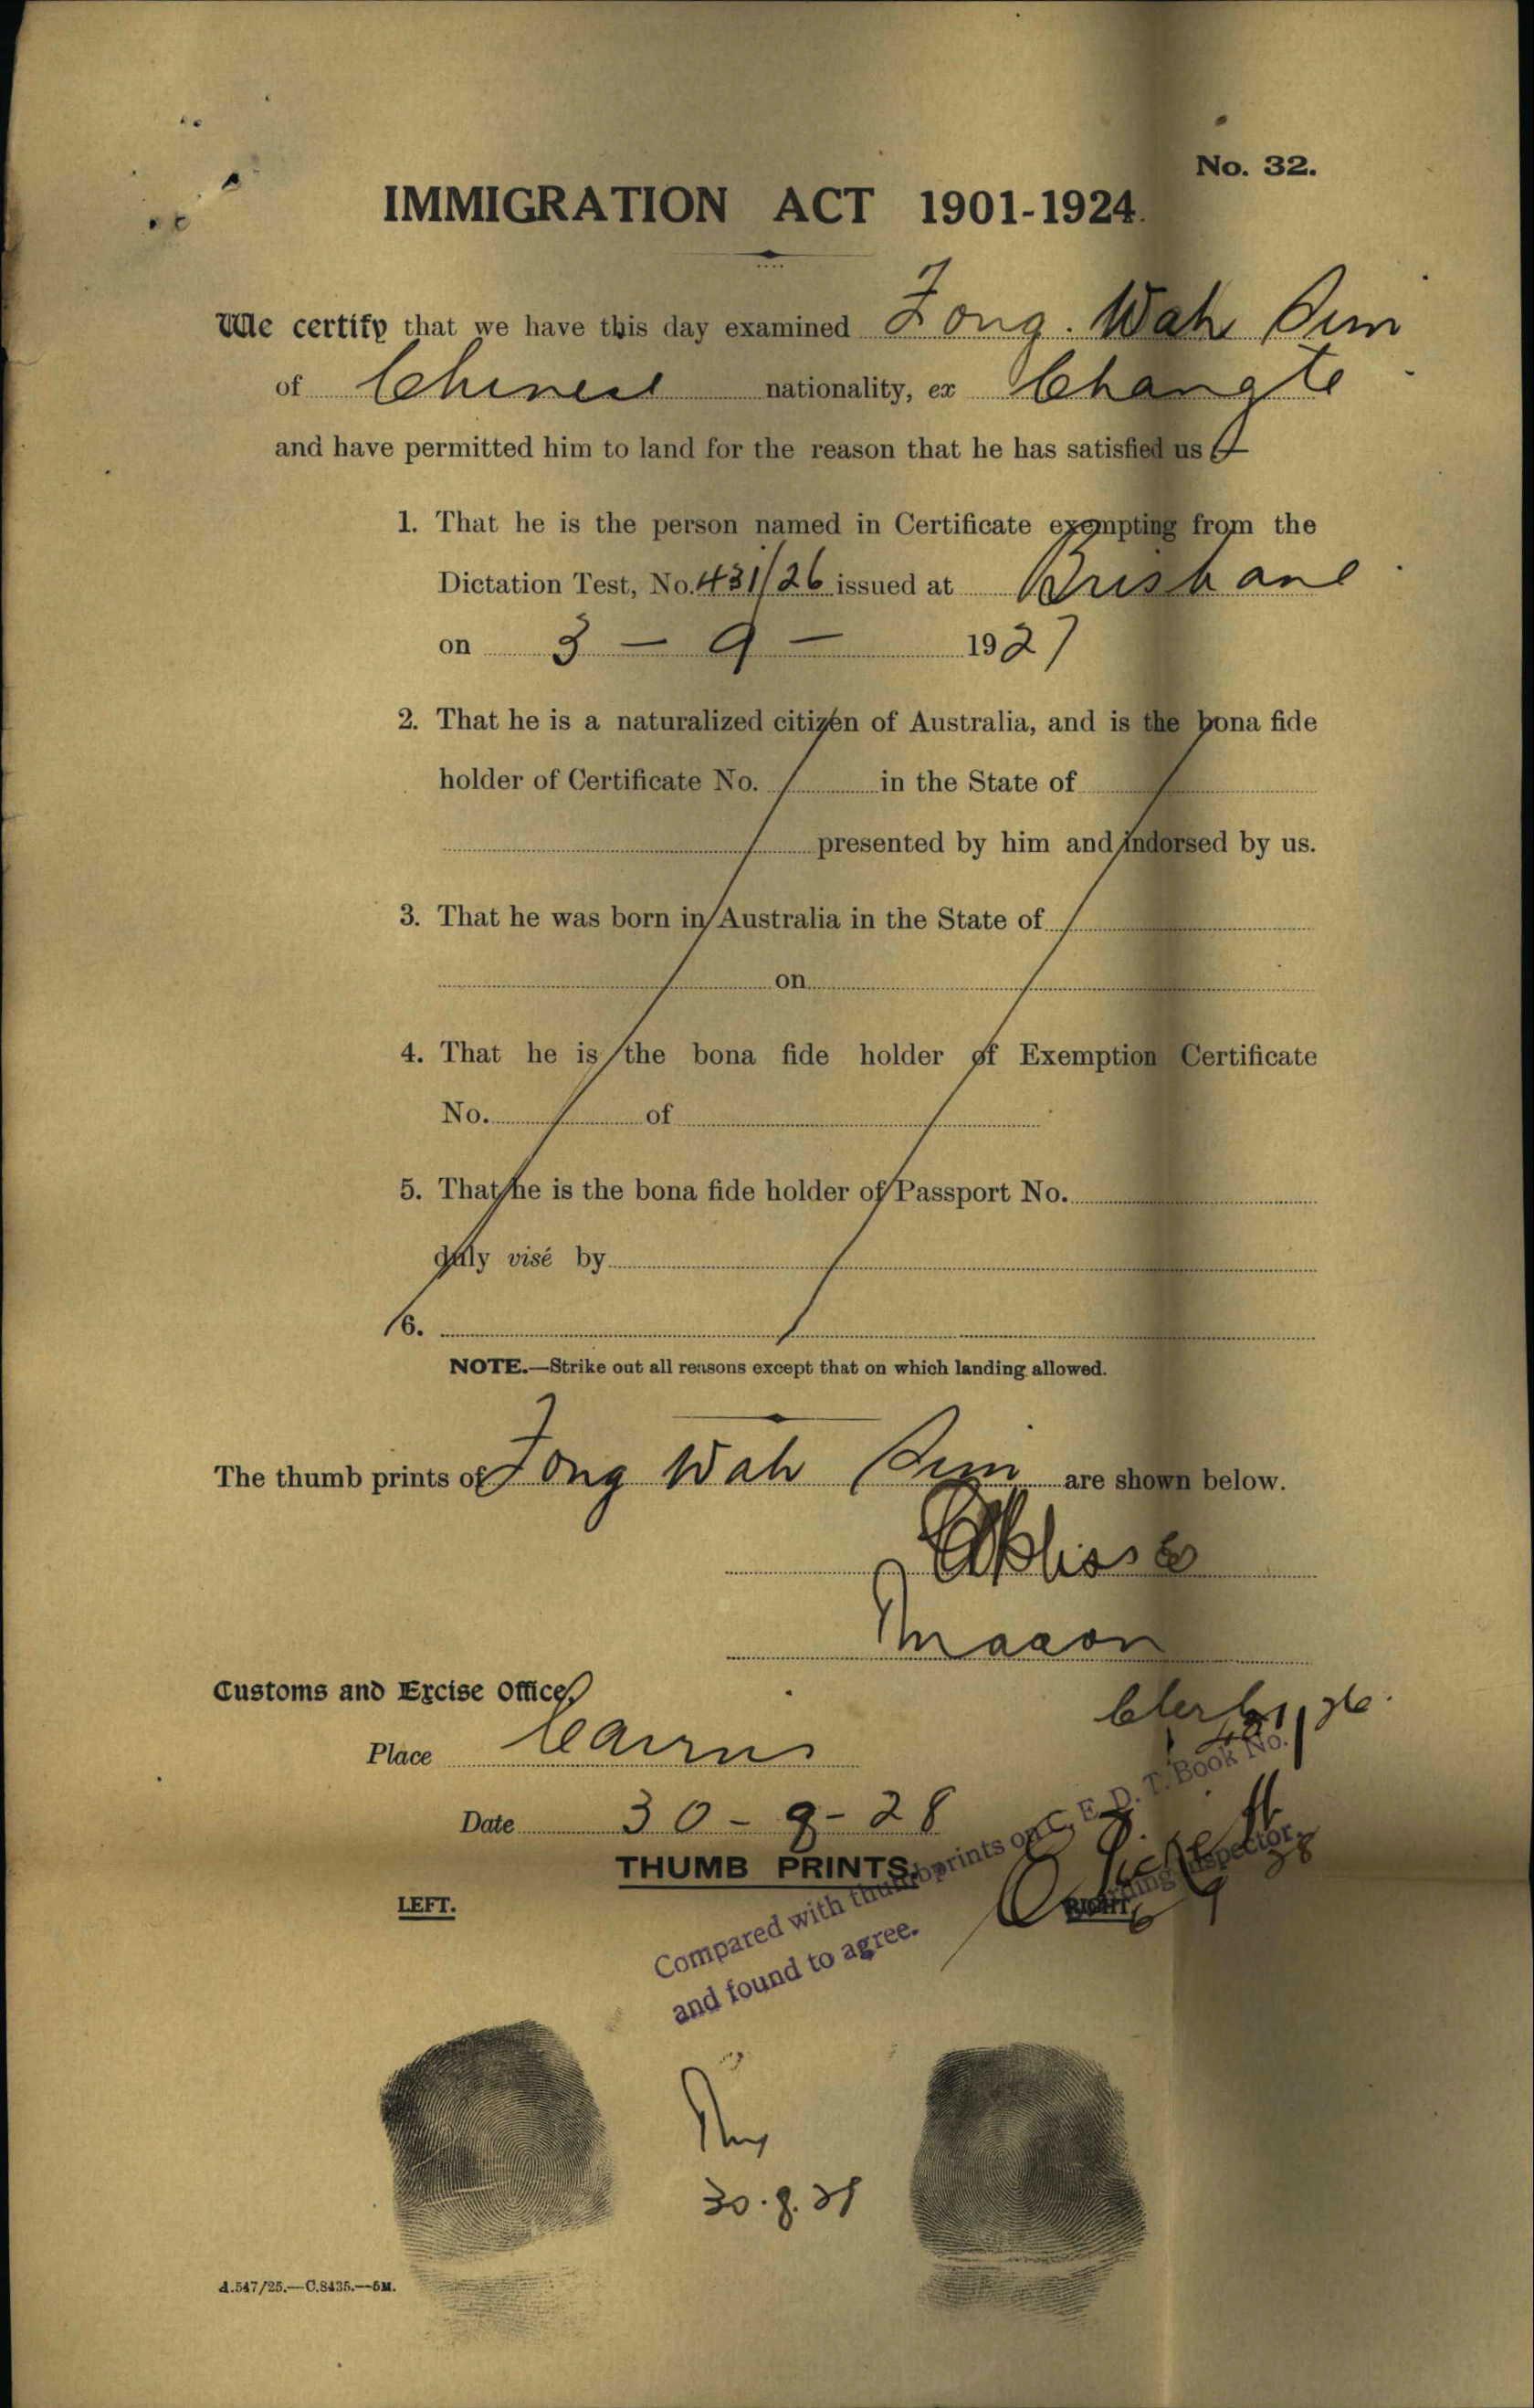 No. 32.
IMMIGRATION ACT 1901-1924.
We certify that we have this day examined Fong. Wah Sim
of Chinese nationality, ex Changte
and have permitted him to land for the reason that he has satisfied us
1. That he is the person named in Certificate exempting from the
Dictation Test, No. 431/26 issued at Brisbane
on 3 - 9 - 1927
2. That he is a naturalized citizen of Australia, and is the bona fide
holder of Certificate No. in the State of
presented by him and indorsed by us.
3. That he was born in Australia in the State of
on
4. That he is the bona fide holder of Exemption Certificate
No. of
5. That he is the bona fide holder of Passport No.
duly visé by
6.
NOTE.—Strike out all reasons except that on which landing allowed.
The thumb prints of Fong Wah Sim are shown below.
Customs and Excise Office,
Place Cairns
Date 30-8-28
THUMB PRINTS.
LEFT.
RIGHT.
Compared with thumbprints on C. E. D. T. Book No. 431/26
and found to agree.
Boarding Inspector.
6 9 28
30.8.28
A.547/25.—C.8435.—5M.